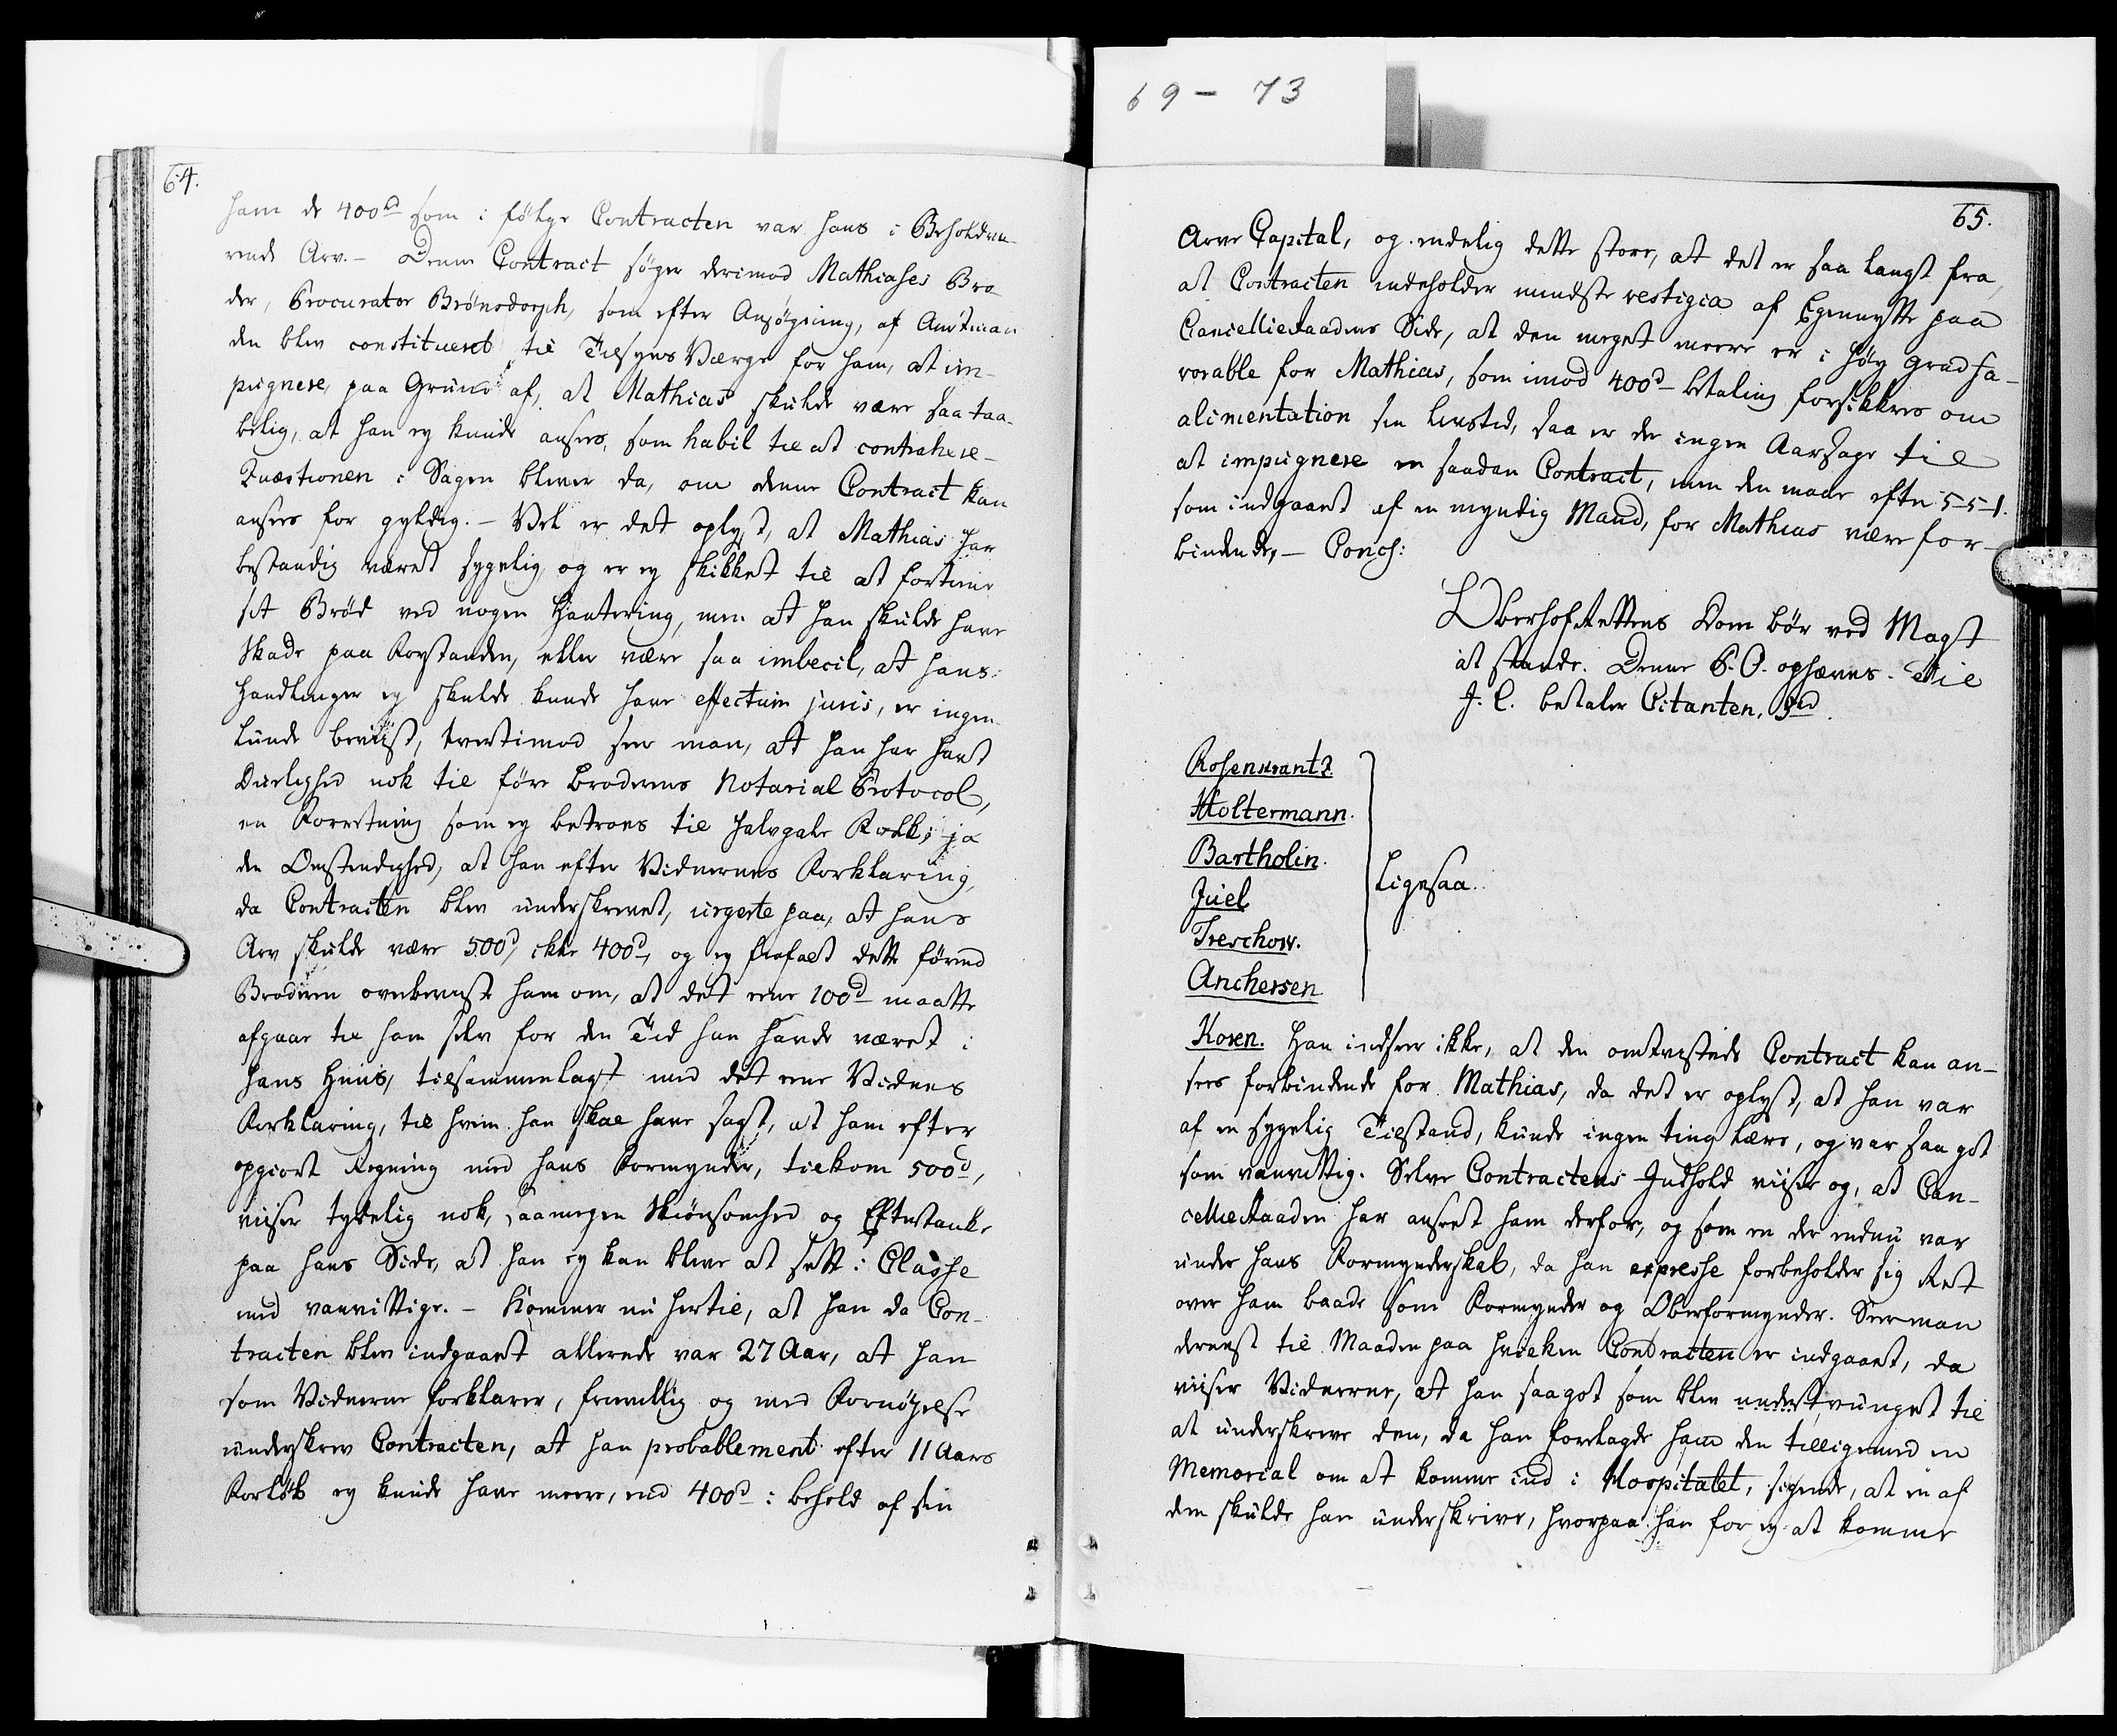 69 - 73
64.
ham de 400d som i følge Contracten var hans i Behold væ-
rende Arv. - Denne Contract søger derimod Mathiases Bro-
der, Procurator Brønsdorph, som efter Ansøgning, af Amtman-
den blev constitueret til Tilsyns Værge for ham, at im-
pugnere, paa Grund af, at Mathias skulde være saa taa-
belig, at han ey kunde ansees, som habil til at contrahere -
Quæstionen i Sagen bliver da, om denne Contract kan
ansees for gyldig. - Vel er det oplyst, at Mathias har
bestandig været sygelig, og er ey skikket til at fortiene
sit Brød ved nogen Handtering, men at han skulde have
Skade paa Forstanden, eller være saa imbecil, at hans
Handlinger ey skulde kunde have effectum juris, er ingen-
lunde beviist, tvertimod seer man, at han har havt
Duelighed nok til føre Broderens Notarial Protocol,
en Forretning som ey betroes til halvgale Folk; ja
den Omstendighed, at han efter Vidnernes Forklaring,
da Contracten blev underskrevet, urgerte paa, at hans
Arv skulde være 500d, ikke 400d, og ey frafalt dette førend
Broderen overbeviiste ham om, at det eene 100d maatte
afgaae til ham selv for den Tid han havde været i
hans Huus, tilsammenlagt med det eene Vidnes
Forklaring, til hvem han skal have sagt, at ham efter
opgiort Regning med hans Formynder, tilkom 500d,
viiser tydelig nok, saamegen Skiønsomhed og Eftertanke
paa hans Side, at han ey kan blive at sætte i Classe
med vanvittige. - Kommer nu hertil, at han da Con-
tracten blev indgaaet allerede var 27 Aar, at han
som Vidnerne forklarer, frievillig og med Fornøyelse
underskrev Contracten, at han probablement efter 11 Aars
Forløb ey kunde have meere, end 400d i behold af sin
65.
Arve Capital, og endelig dette store, at det er saa langt fra,
at Contracten indeholder mindste vestigia af Egennytte paa
CancellieRaadens Side, at den meget meere er i høy Grad fa-
vorable for Mathias, som imod 400d betaling forsikkres om
alimentation sin Livstid, saa er der ingen Aarsage til
at impugnere en saadan Contract, men den maae efter 5-5-1.
som indgaaet af en myndig Mand, for Mathias være for-
bindende, - Concl:
OberhofRettens Dom bør ved Magt
at stande. Denne P. O. ophæves. Til
J. C. betaler Citanten, 5rd.
Rosenkrantz.
Stoltermann.
Bartholin.
Juel
Treschow.
Anchersen
Ligesaa.
Kosen. Han indseer ikke, at den omtvistede Contract kan an-
sees forbindende for Mathias, da det er oplyst, at han var
af en sygelig Tilstand, kunde ingen ting lære, og var saa got
som vanvittig. Selve Contractens Indhold viiser og, at Can-
cellieRaaden har anseet ham derfor, og som en der endnu var
under hans Formynderskab, da han expresse forbeholder sig Ret
over ham baade som Formynder og Oberformynder. Seer man
dernæst til Maaden paa hvilken Contracten er indgaaet, da
viiser Vidnerne, at han saagot som blev undertvunget til
at underskrive den, da han forelagde ham den tilligemed en
Memorial om at komme ind i Hospitalet, sigende, at een af
dem skulde han underskrive, hvorpaa han for ey at komme